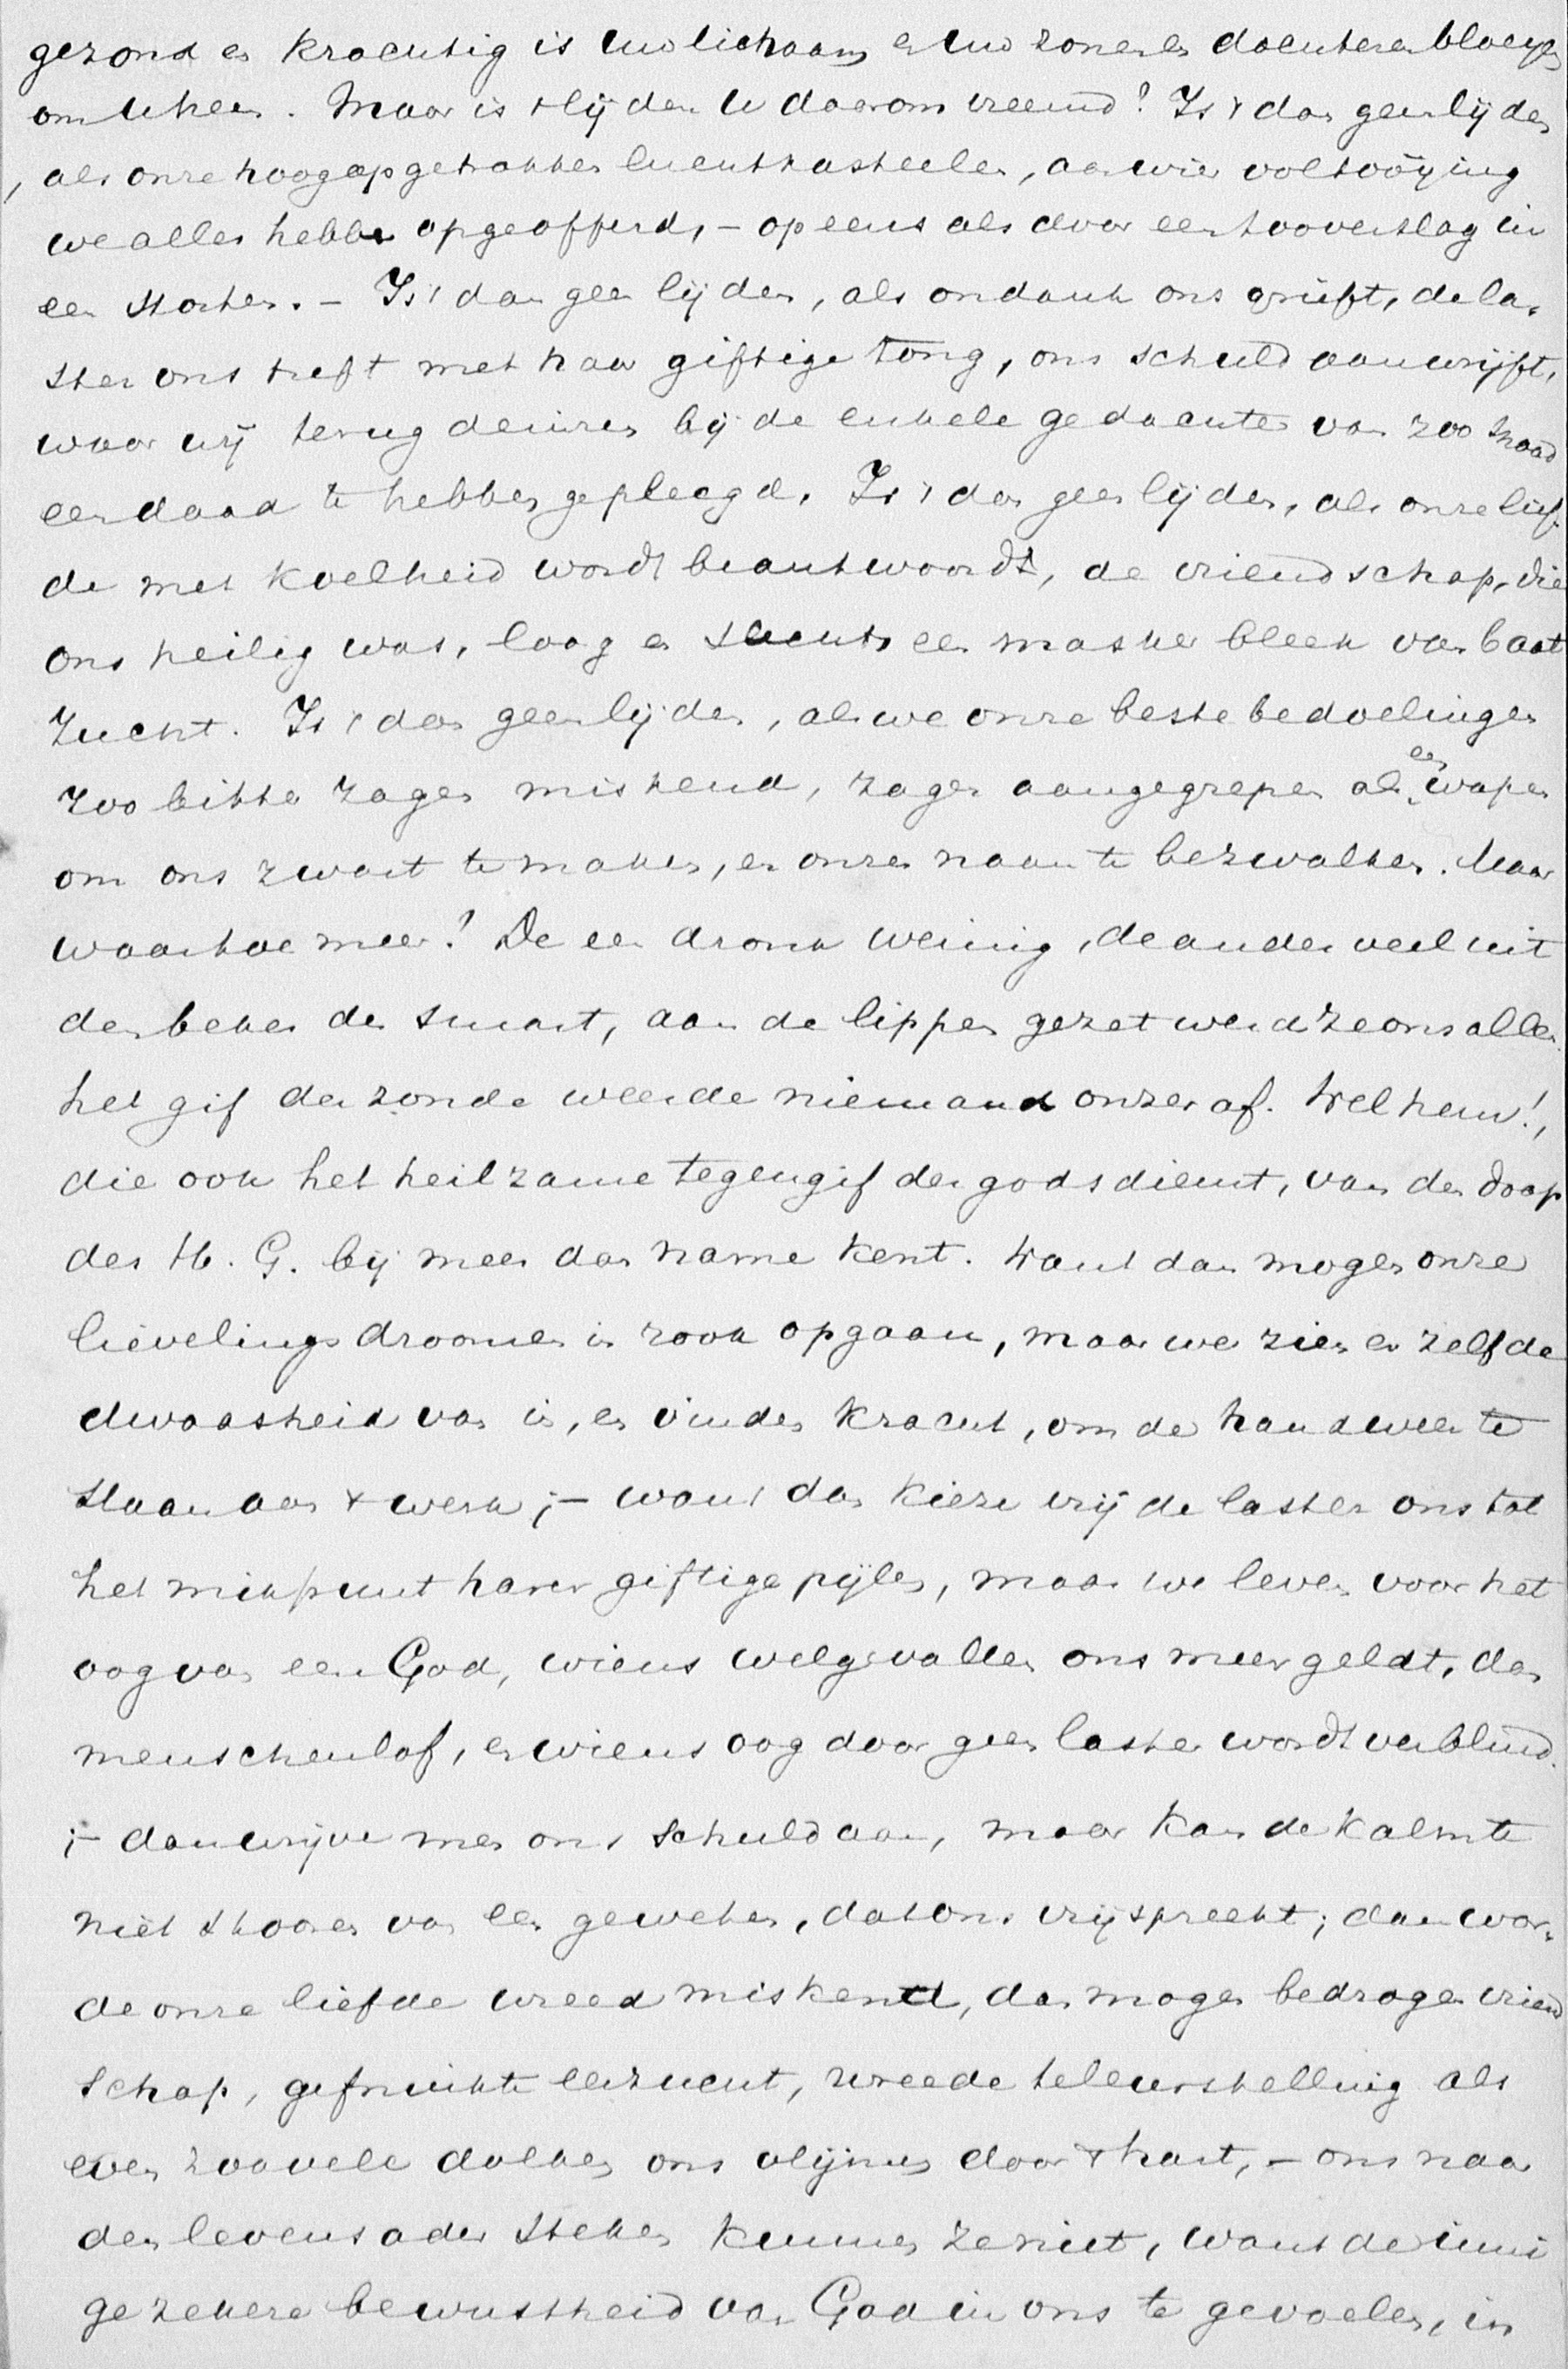 gezond en krachtig is uw lichaam en uw zonen en dochteren bloeyen
om U heen. Maar is 't lijden U daarom vreemd? Is 't dan geen lijden
, als onze hoogopgetrokken luchtkasteelen, aan wier voltooijing
we alles hebben opgeofferd, – opeens als door een tooverslag in
een storten. – Is 't dan geen lijden, als ondank ons grieft, de la-
ster ons treft met haar giftige tong, ons schuld aanwrijft,
waar wij terug deinzen bij de enkele gedachte van zoo snood
een daad te hebben gepleegd. Is 't dan geen lijden, als onze lief-
de met koelheid wordt beantwoordt, de vriendschap, die
ons heilig was, laag en slechts een masker bleek van baat
zucht. Is 't dan geen lijden, als we onze beste bedoelingen
zoo bitter zagen miskend, zagen aangegrepen als een wapen
om ons zwart te maken, en onzen naam te bezwalken. Maar
waartoe meer? De een dronk weinig, de ander veel uit
den beker der smart, aan de lippen gezet werd ze ons allen.
het gif der zonde weerde niemand onzer af. Wel hem!,
die ook het heilzame tegengif der godsdienst, van den doop
des H. G. bij meer dan name kent. Want dan mogen onze
lievelingsdroomen in rook opgaan, maar we zien er zelf de
dwaasheid van in, en vinden kracht, om de hand weer te
slaan aan 't werk; – want dan kieze vrij de laster ons tot
het mikpunt harer giftige pijlen, maar we leven voor het
oog van een God, wiens welgevallen ons meer geldt, dan
menschenlof, en wiens oog door geen laster wordt verblind.
; – dan wrijve men ons schuld aan, maar kan de kalmte
niet stooren van een geweten, dat ons vrijspreekt; dan wor-
de onze liefde wreed miskend, dan mogen bedrogen vriend
schap, gefnuikte eerzucht, wreede teleurstelling als
even zoovele dolken ons vlijmen door 't hart, – ons naar
den levensader steken kunnen ze niet, want de inni
ge zekere bewustheid van God in ons te gevoelen, in